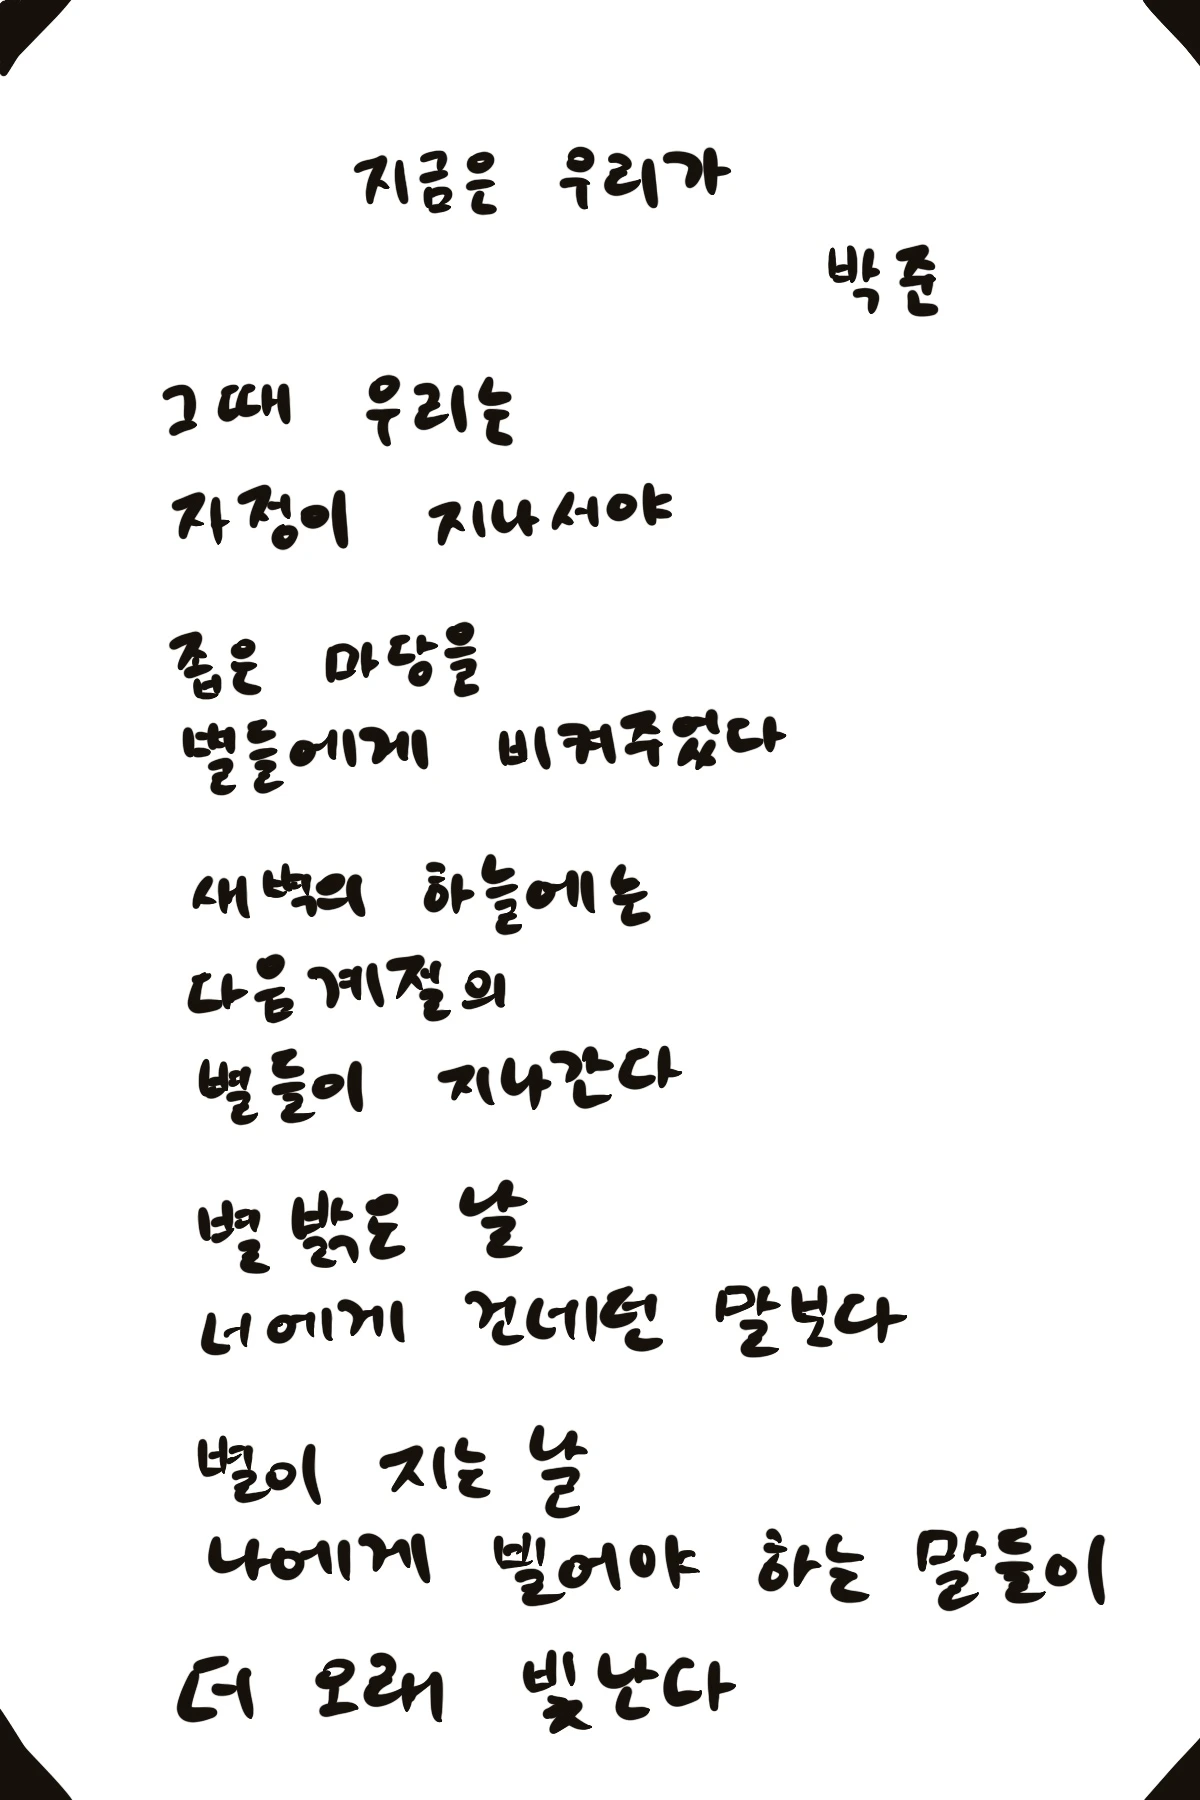 지금은 우리가
박준
그때 우리는
자정이 지나서야
좁은 마당을
별들에게 비켜주었다
새벽의 하늘에는
다음 계절의
별들이 지나간다
별 밝은 날
너에게 건네던 말보다
별이 지는 날
나에게 빌어야 하는 말들이
더 오래 빛난다